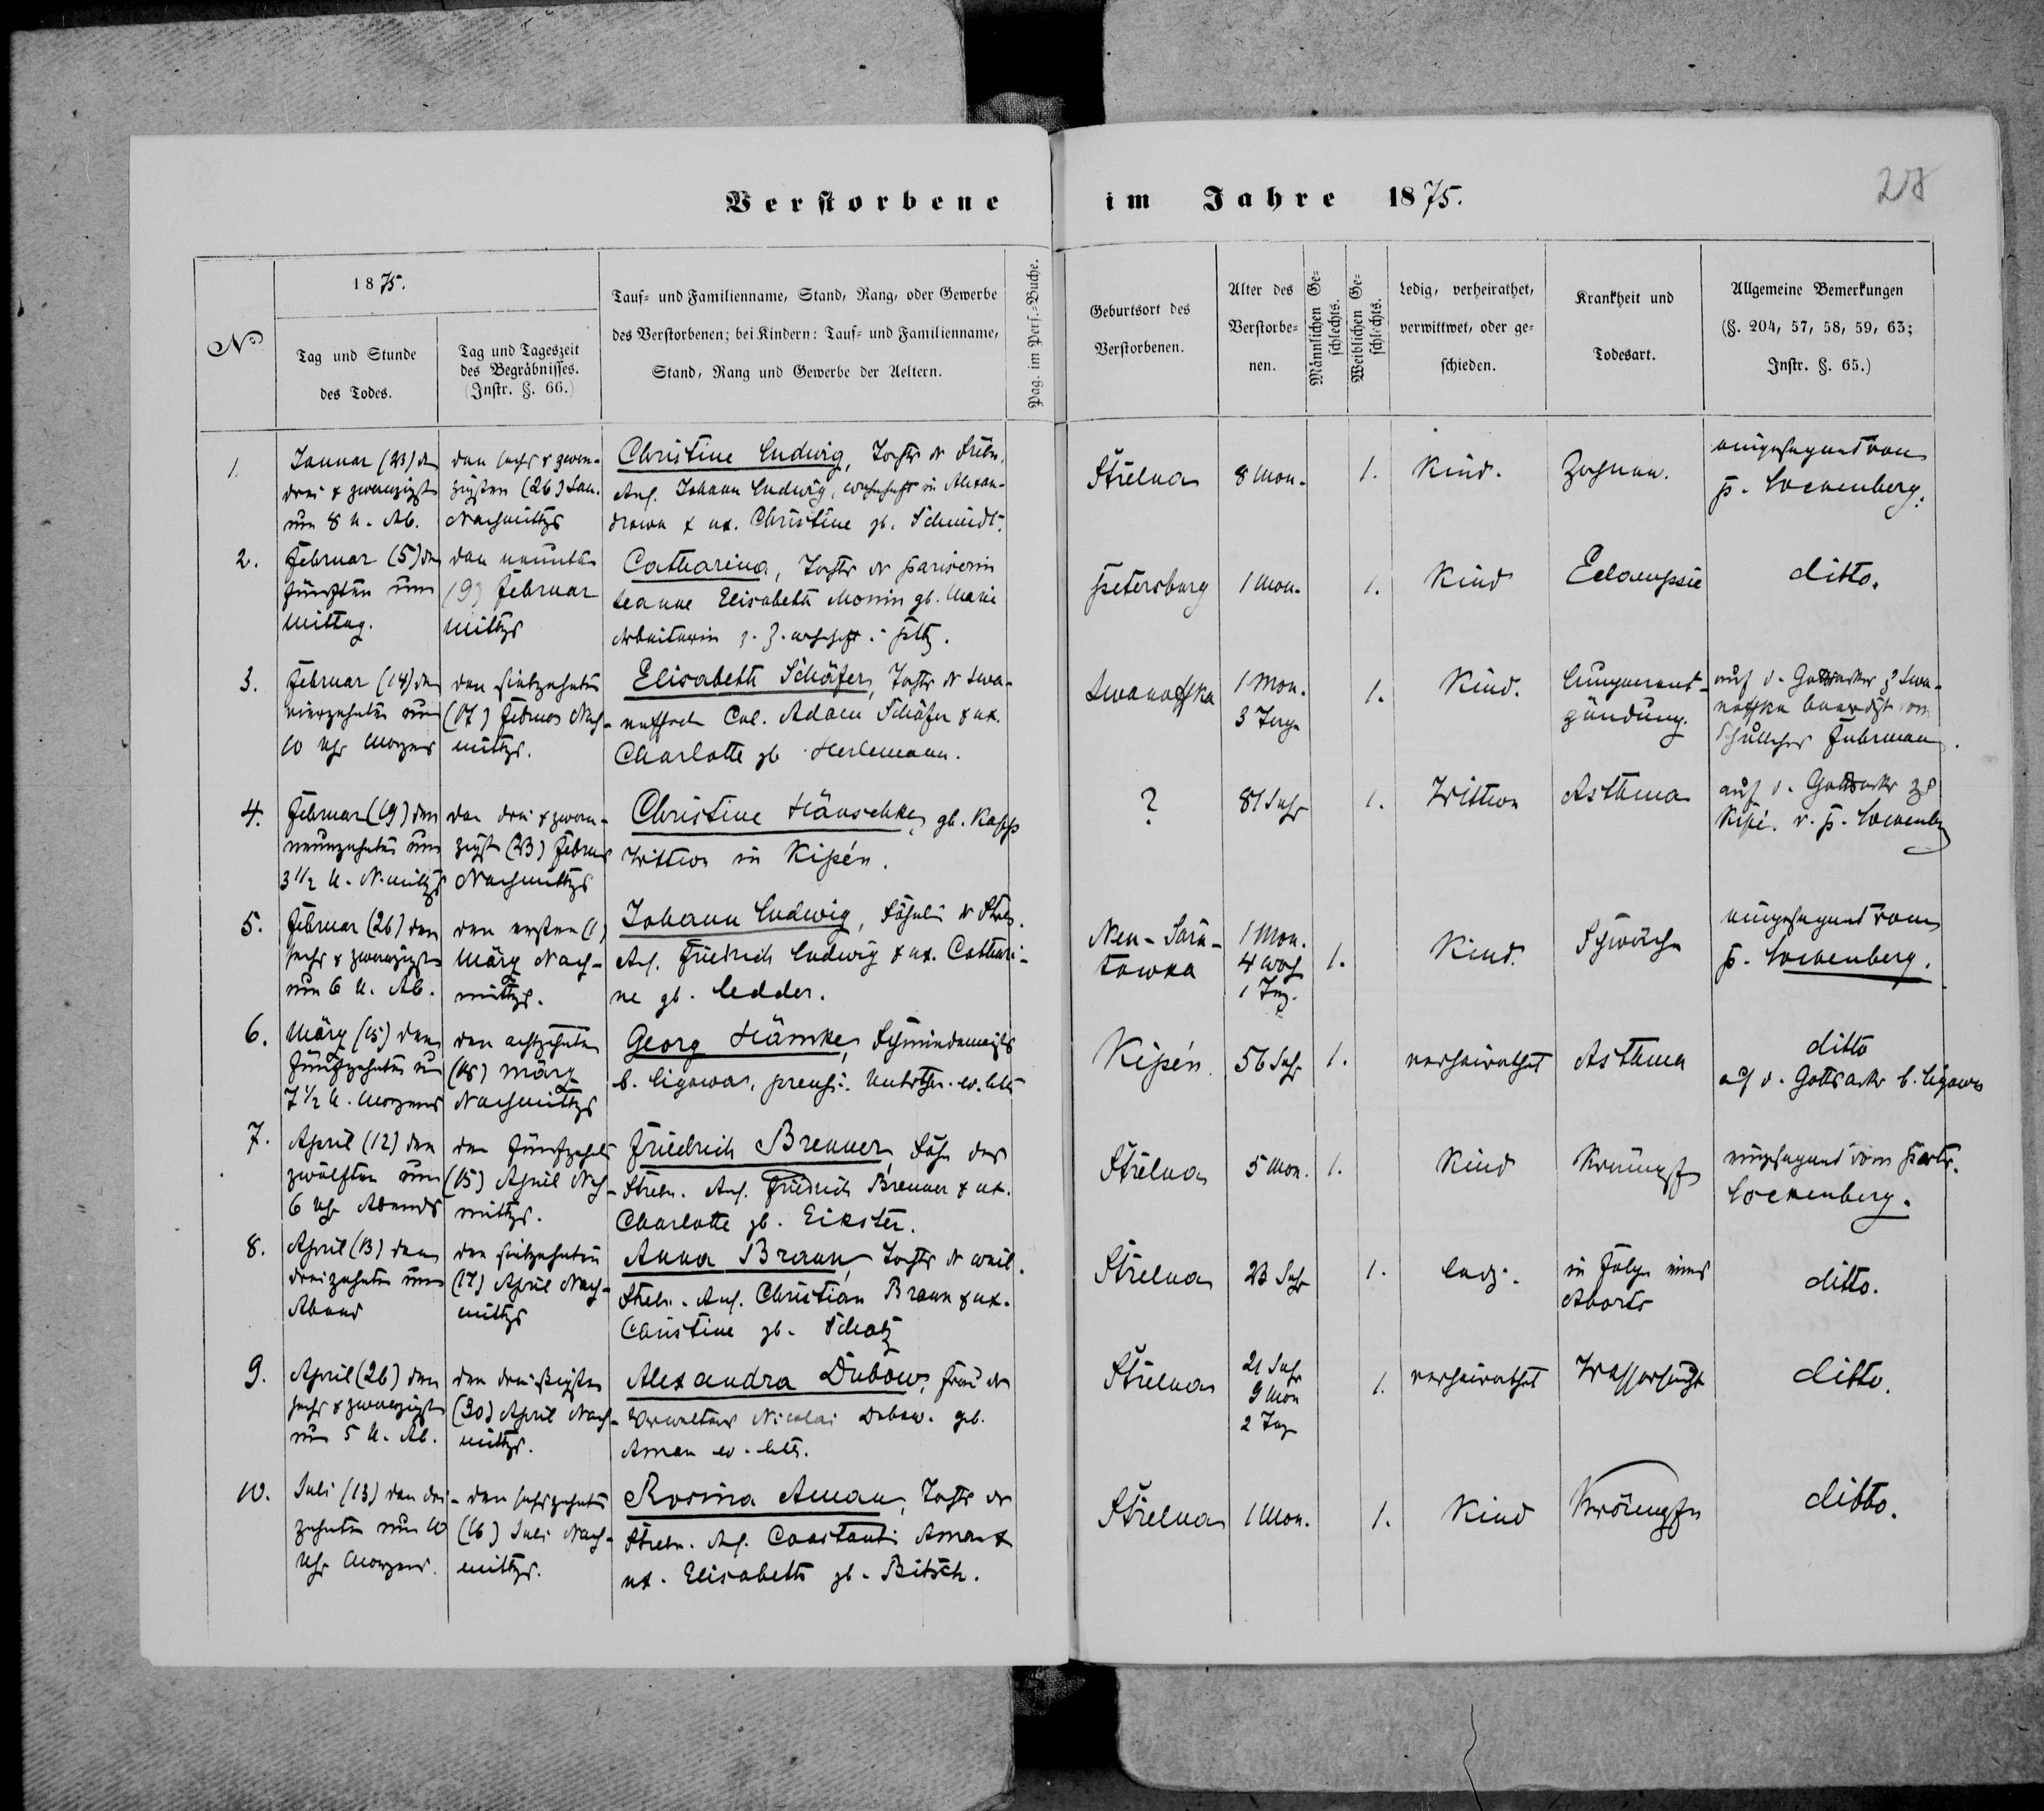 Verstorbene im Jahre 1875.
28
1875.
No
Tag und Stunde
des Todes.
Tag und Tageszeit
des Begräbnisses.
(Instr. §. 66.)
Tauf- und Familienname, Stand, Rang, oder Gewerbe
des Verstorbenen; bei Kindern: Tauf- und Familienname,
Stand, Rang und Gewerbe der Aeltern.
Pag. im Pers.-Buche.
Geburtsort des
Verstorbenen.
Alter des
Verstorbe-
nen.
Männlichen Ge-
schlechts.
Weiblichen Ge-
schlechts.
Ledig, verheirathet,
verwittwet, oder ge-
schieden.
Krankheit und
Todesart.
Allgemeine Bemerkungen
(§. 204, 57, 58, 59, 63;
Instr. §. 65.)
1.
Januar (23) den
drei & zwanzigst
um 8 U. Ab.
den sechs & zwan-
zigsten (26) Jan.
Nachmittgs
Christine Ludwig, Tochter d Streln.
Ans. Johann Ludwig, wohnhaft in Alexan-
drowa & ux. Christine gb. Schmidt.
Strelna
8 Mon.
1.
Kind.
Zahnen.
eingesegnet von
P. Lockenberg.
2.
Februar (5) den
fünften um
Mittag.
den neunten
(9) Februar
Mittgs
Catharina, Tochter d Pariserin
Jeanne Elisabeth Monin gb. Marie
Arbeiterin z. Z. wohnhft. i. Ptbg.
Petersburg
1 Mon.
1.
Kind
Eclampsie
ditto.
3.
Februar (14) den
vierzehnten um
10 Uhr Morgens
den siebzehnten
(17) Februar Nach-
mittgs.
Elisabeth Schäfer, Tochter d Iwa-
noffsch. Col. Adam Schäfer & ux.
Charlotte gb Herlemann.
Iwanoffska
1 Mon.
3 Tage
1.
Kind.
Lungenent-
zündung.
auf d. Gottesacker z Iwa-
noffka beerdigt vom
Schullehrer Fuhrmann.
4.
Februar (19) den
neunzehnten um
3 1/2 U. N.mittgs
den drei & zwan-
zigst (23) Februar
Nachmittgs
Christine Hänschke, gb. Rapp
Wittwe in Kipén.
?
81 Jahr
1.
Wittwe
Asthma
auf d. Gottesacker zu
Kipé. v. P. Lockenbg
5.
Februar (26) den
sechs & zwanzigsten
um 6 U. Ab.
den ersten (1)
März Nach-
mittgs.
Johann Ludwig, Söhnlein d Streln.
Ans. Friedrich Ludwig & ux. Cathari-
ne gb. Ledder.
Neu-Sara-
towka
1 Mon.
4 Woch
1 Tag.
1.
Kind.
Schwäche
eingesegnet vom
P. Lockenberg.
6.
März (15) den
fünfzehnten um
7 1/2 U. Morgens
den achtzehnten
(18) März
Nachmittgs
Georg Hämke, Schmiedemeister
b. Ligowa, preuß. Unterthan. ev. luth
Kipén.
56 Jahr
1.
verheirathet
Asthma
ditto
auf d. Gottsackr b. Ligowa
7.
April (12) den
zwölften um
6 Uhr Abends
den fünfzehnt
(15) April Nach-
mittgs.
Friedrich Brenner, Sohn des
Streln. Ans. Friedrich Brenner & ux.
Charlotte gb. Eikster.
Strelna
5 Mon.
1.
Kind
Krämpfe
eingesegnet vom Past.
Lockenberg.
8.
April (13) den
dreizehnten um
Abend
den siebzehnten
(17) April Nach-
mittgs
Anna Braun, Tochter d weil.
Streln. Ans. Christian Braun & ux.
Christine gb. Schatz
Strelna
23 Jahr
1.
ledig.
in Folge eines
Aborts
ditto.
9.
April (26) den
sechs & zwanzigst
um 5 U. Ab.
den dreißigsten
(30) April Nach-
mittgs.
Alexandra Dubow, Frau des
Verwalters Nicolai Dubow. geb.
Aman ev. luth.
Strelna
21 Jahr
9 Mon
2 Tag
1.
verheirathet
Wassersucht
ditto.
10.
Juli (13) den drei-
zehnten um 10
Uhr Morgens.
den sechszehnten
(16) Juli Nach-
mittgs.
Rosina Aman, Tochter des
Streln. Ans. Constanti Aman &
ux. Elisabeth gb. Bitsch.
Strelna
1 Mon.
1.
Kind
Krämpfe
ditto.